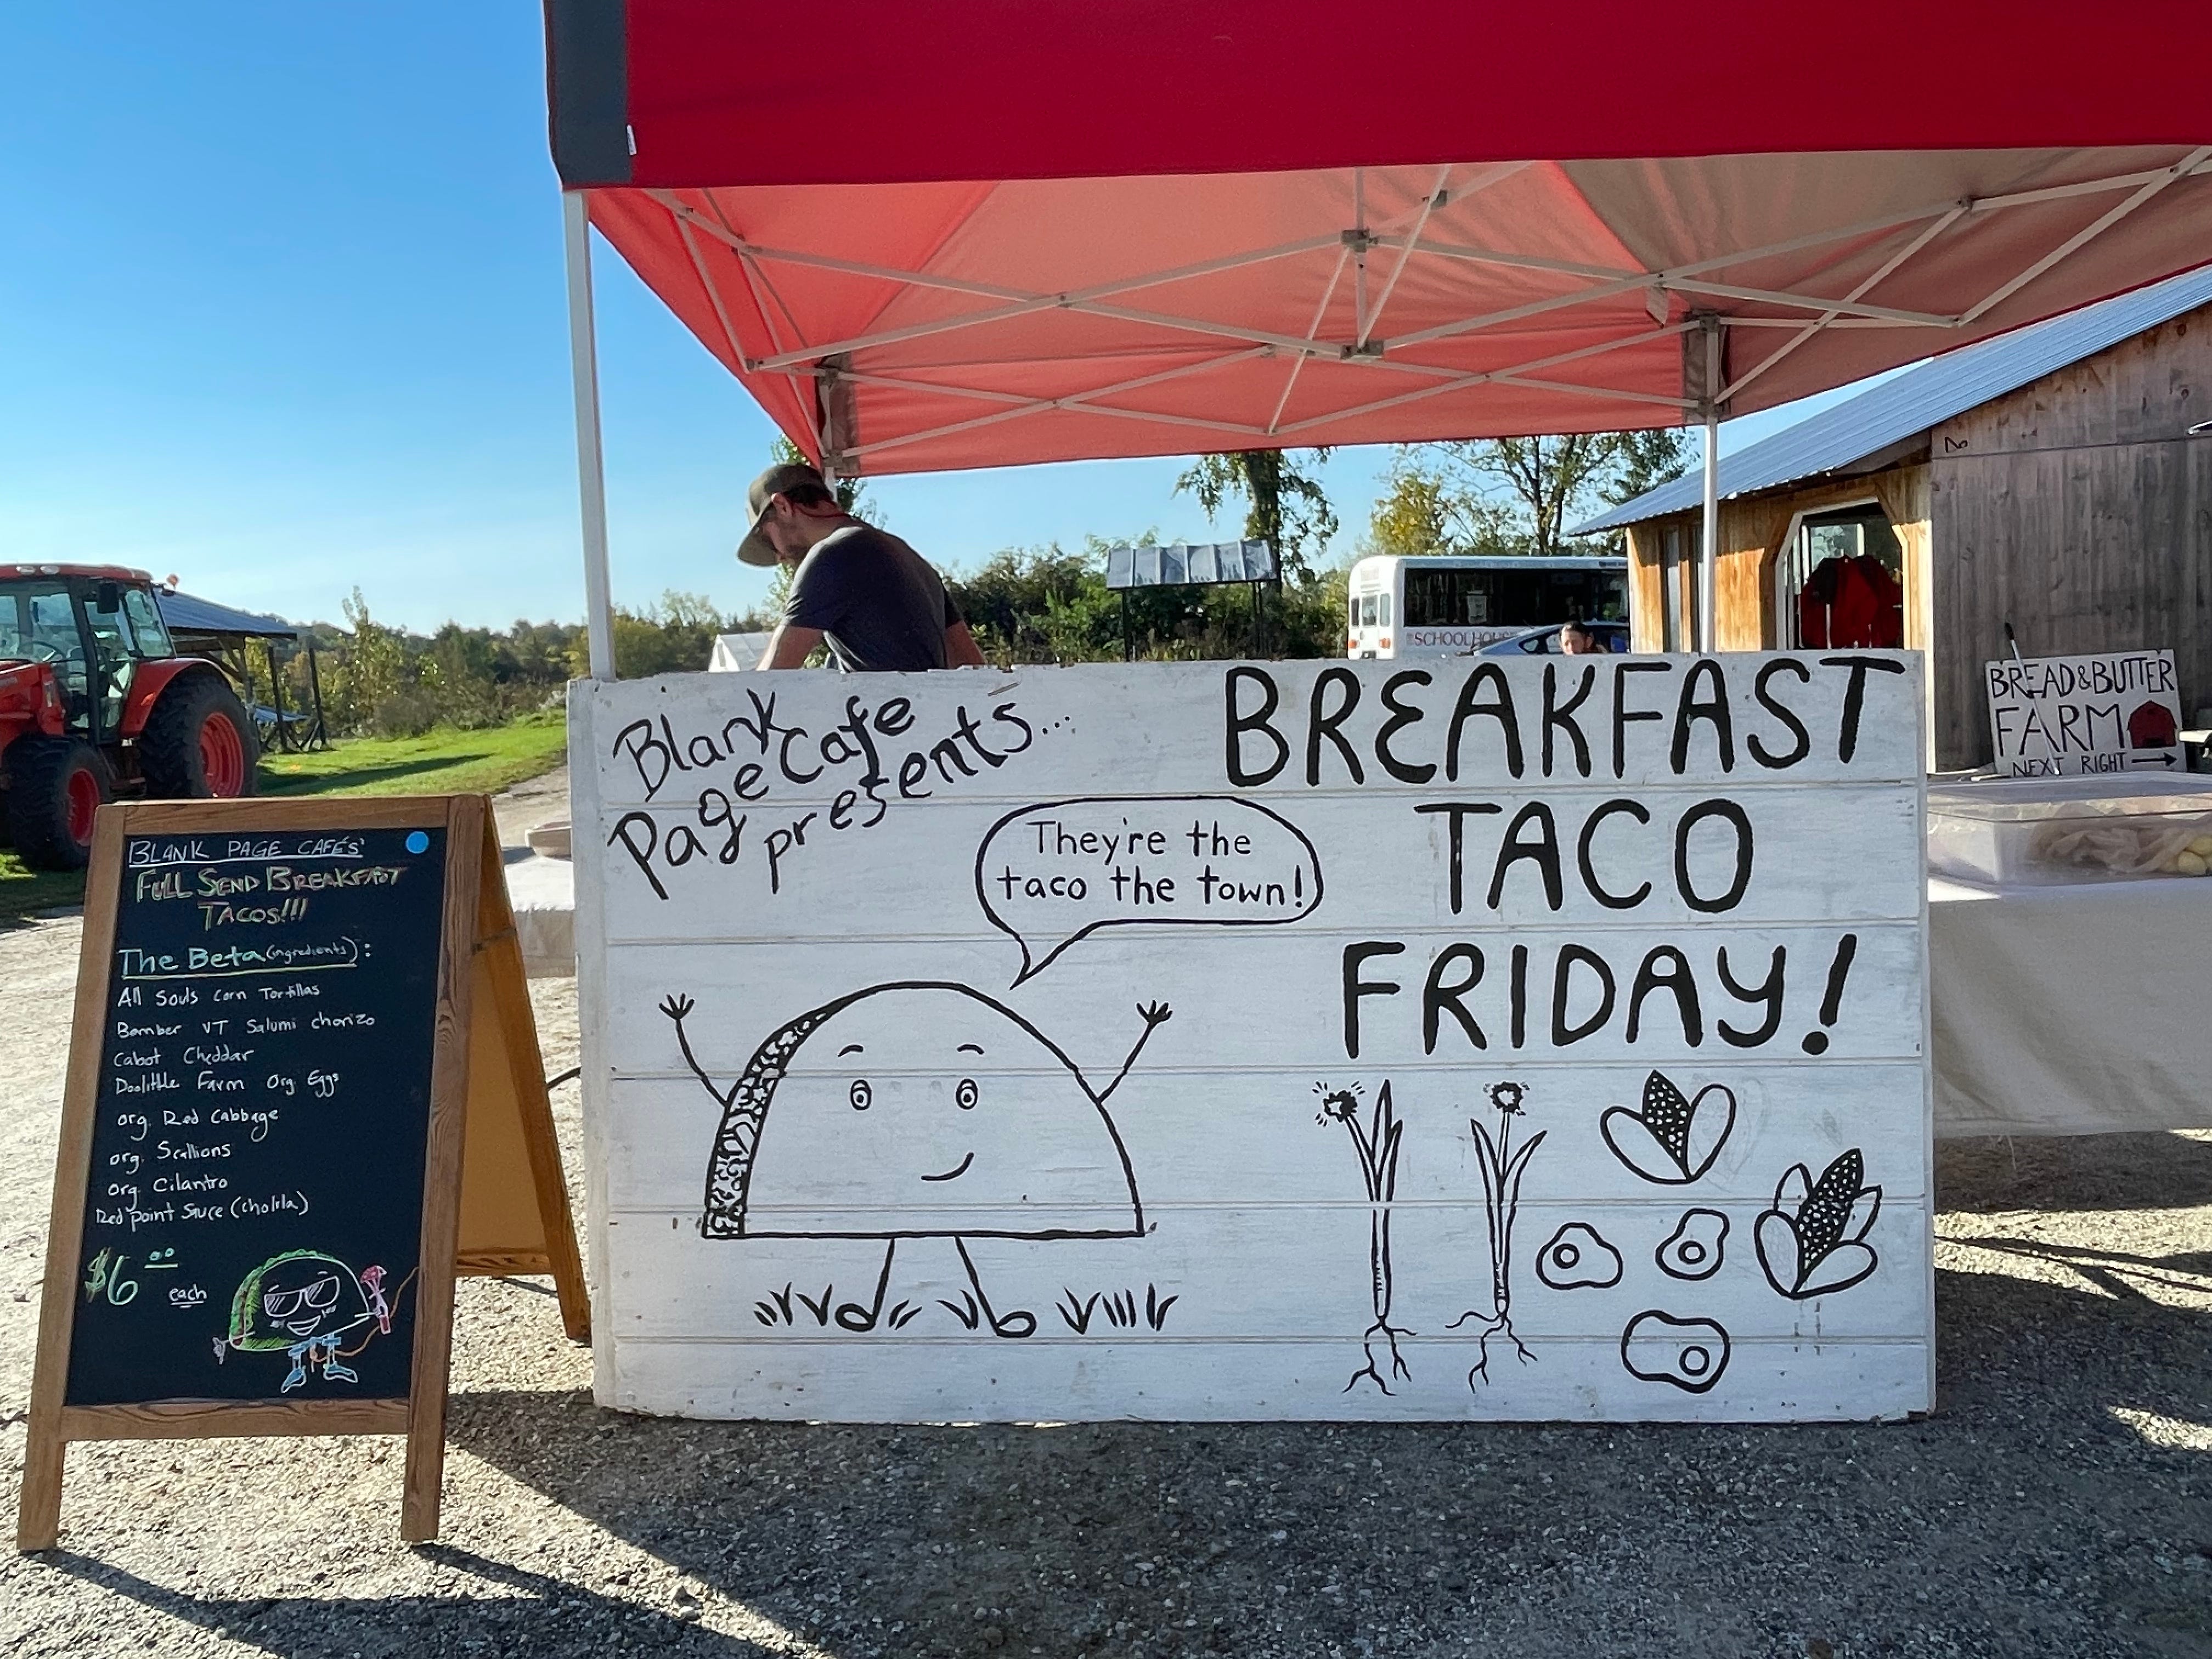 BLANK PAGE CAFÉS'
FULL SEND BREAKFAST
TACOS!!!
The Beta (ingredients):
All Souls Corn Tortillas
Bomber VT Salumi chorizo
Cabot Cheddar
Doolittle Farm Org Eggs
org. Red Cabbage
org. Scallions
org. Cilantro
Red point Sauce (cholula)
$6.00 each
Blank
Page Cafe
presents...
They're the
taco the town!
BREAKFAST
TACO
FRIDAY!
SCHOOLHOUSE
BREAD & BUTTER
FARM
NEXT RIGHT →